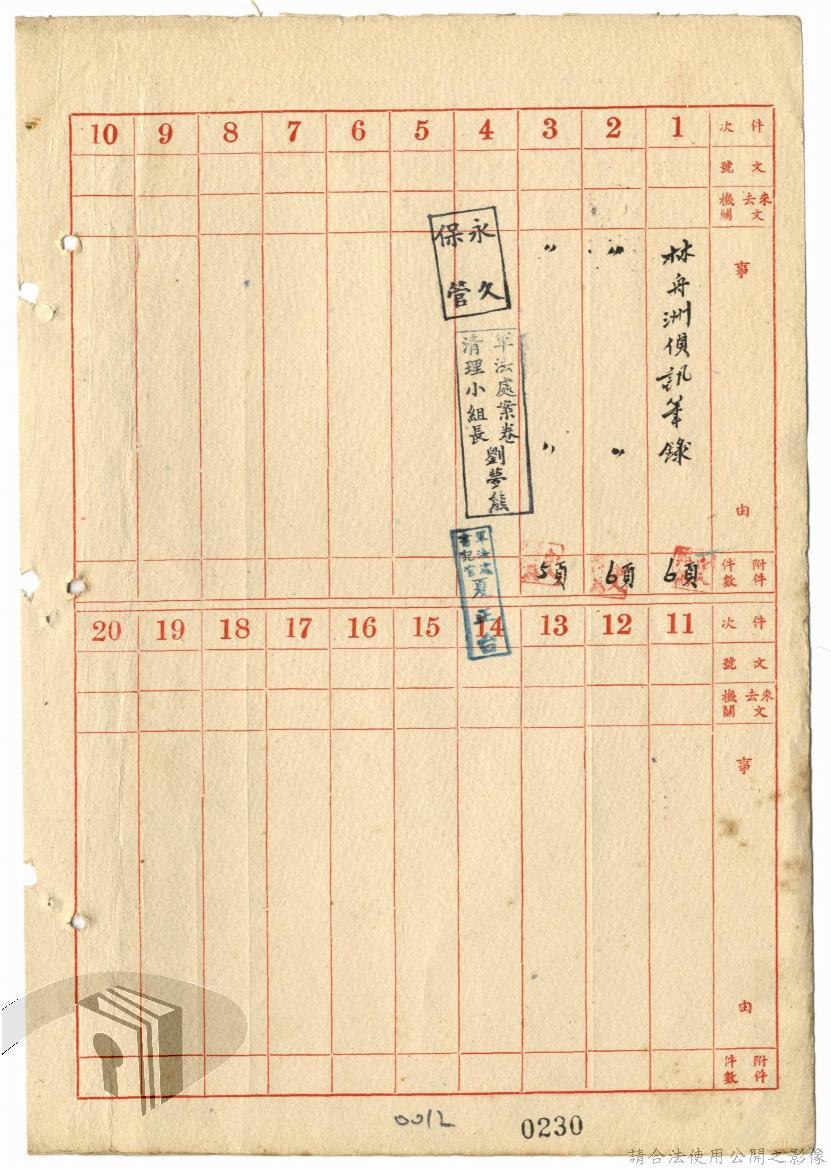 件次 1 2 3 4 5 6 7 8 9 10
文號
來去文機關
事由
林舟洲偵訊筆錄
〃 〃
〃 〃
永久保管
軍法處案卷清理小組長 劉夢熊
軍法處書記官 夏平台
附件件數 6頁 6頁 5頁
件次 11 12 13 14 15 16 17 18 19 20
文號
來去文機關
事由
附件件數
0012
0230
請合法使用公開之影像